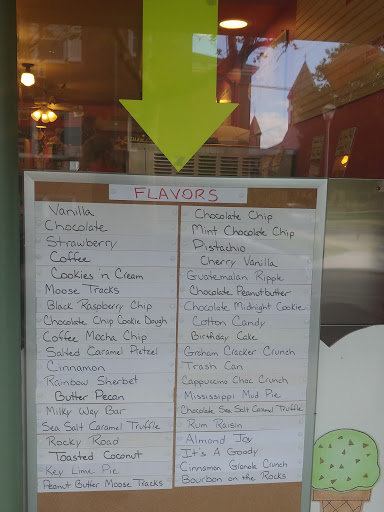 FLAVORS
Vanilla
Chocolate
Strawberry
Coffee
Cookies 'n Cream
Moose Tracks
Black Raspberry Chip
Chocolate Chip Cookie Dough
Coffee Mocha Chip
Salted Caramel Pretzel
Cinnamon
Rainbow Sherbet
Butter Pecan
Milky Way Bar
Sea Salt Caramel Truffle
Rocky Road
Toasted Coconut
Key Lime Pie
Peanut Butter Moose Tracks
Chocolate Chip
Mint Chocolate Chip
Pistachio
Cherry Vanilla
Guatemalan Ripple
Chocolate Peanutbutter
Chocolate Midnight Cookie
Cotton Candy
Birthday Cake
Graham Cracker Crunch
Trash Can
Cappuccino Choc Crunch
Mississippi Mud Pie
Chocolate Sea Salt Caramel Truffle
Rum Raisin
Almond Joy
It's A Goody
Cinnamon Granola Crunch
Bourbon on the Rocks